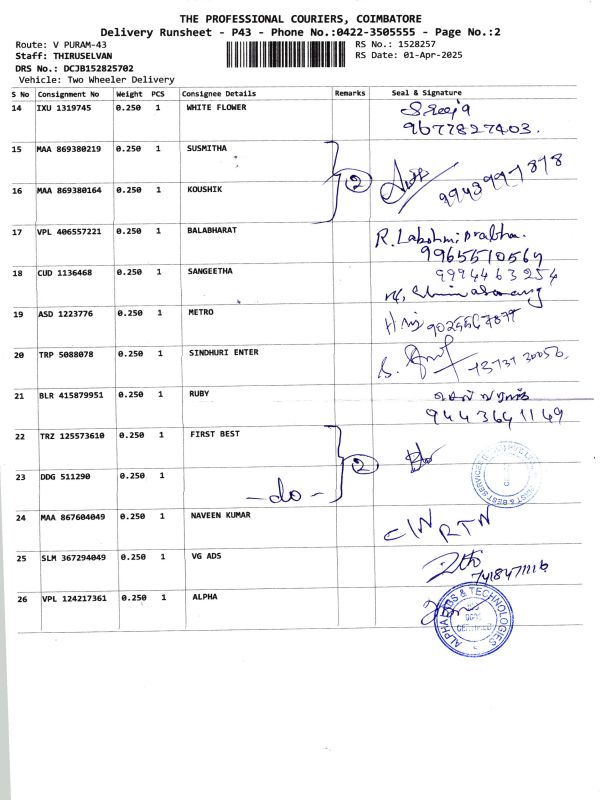 THE PROFESSIONAL COURIERS, COIMBATORE
Delivery Runsheet - P43 - Phone No.:0422-3505555 - Page No.:2
Route: V PURAM-43
RS No.: 1528257
Staff: THIRUSELVAN
RS Date: 01-Apr-2025
DRS No.: DCJB152825702
Vehicle: Two Wheeler Delivery
S No Consignment No Weight PCS Consignee Details Remarks Seal & Signature
14 IXU 1319745 0.250 1 WHITE FLOWER
9677827403.
15 MAA 869380219 0.250 1 SUSMITHA
2
16 MAA 869380164 0.250 1 KOUSHIK
17 VPL 406557221 0.250 1 BALABHARAT R. Lakshmi prabha.
9965510564
18 CUD 1136468 0.250 1 SANGEETHA 9994463254
19 ASD 1223776 0.250 1 METRO
20 TRP 5088078 0.250 1 SINDHURI ENTER
21 BLR 415879951 0.250 1 RUBY
9443641149
22 TRZ 125573610 0.250 1 FIRST BEST
2
23 DDG 511290 0.250 1
- do -
24 MAA 867604049 0.250 1 NAVEEN KUMAR
25 SLM 367294049 0.250 1 VG ADS
26 VPL 124217361 0.250 1 ALPHA